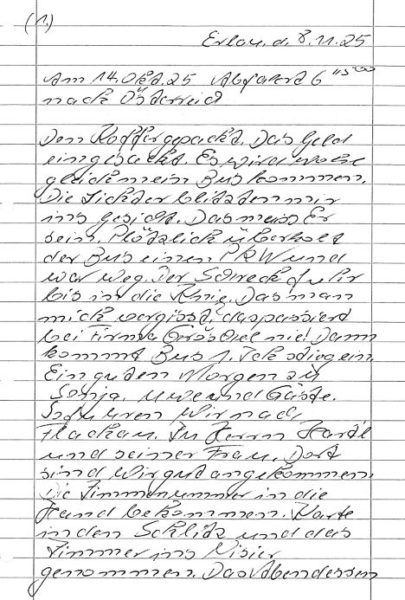 (1.)
Erlau, d. 8.11.25
Am 14.Okt.25 Abfahrt 6
nach Österreich
Den Koffer gepackt. Das Geld
eingesackt. Es wird wohl
gleich mein Bus kommen.
Die Lichter blitzten mir
ins Gesicht. Das muss Er
sein. Plötzlich überholt
der Bus einen PKW und
war weg. Der Schreck fuhr
bis in die Knie. Das man
mich vergisst, das passiert
bei Firma nie! Dann
kommt Bus 1. Ich stieg ein.
Ein guten Morgen zu
Sonja, Uwe und Gäste.
So fuhren wir nach
Flachau. Zu Herrn Hartl
und seiner Frau. Dort
sind wir gut angekommen.
Die Zimmernummer in die
Hand bekommen. Karte
in den Schlitz und das
Zimmer ins Visier
genommen. Das Abendessen